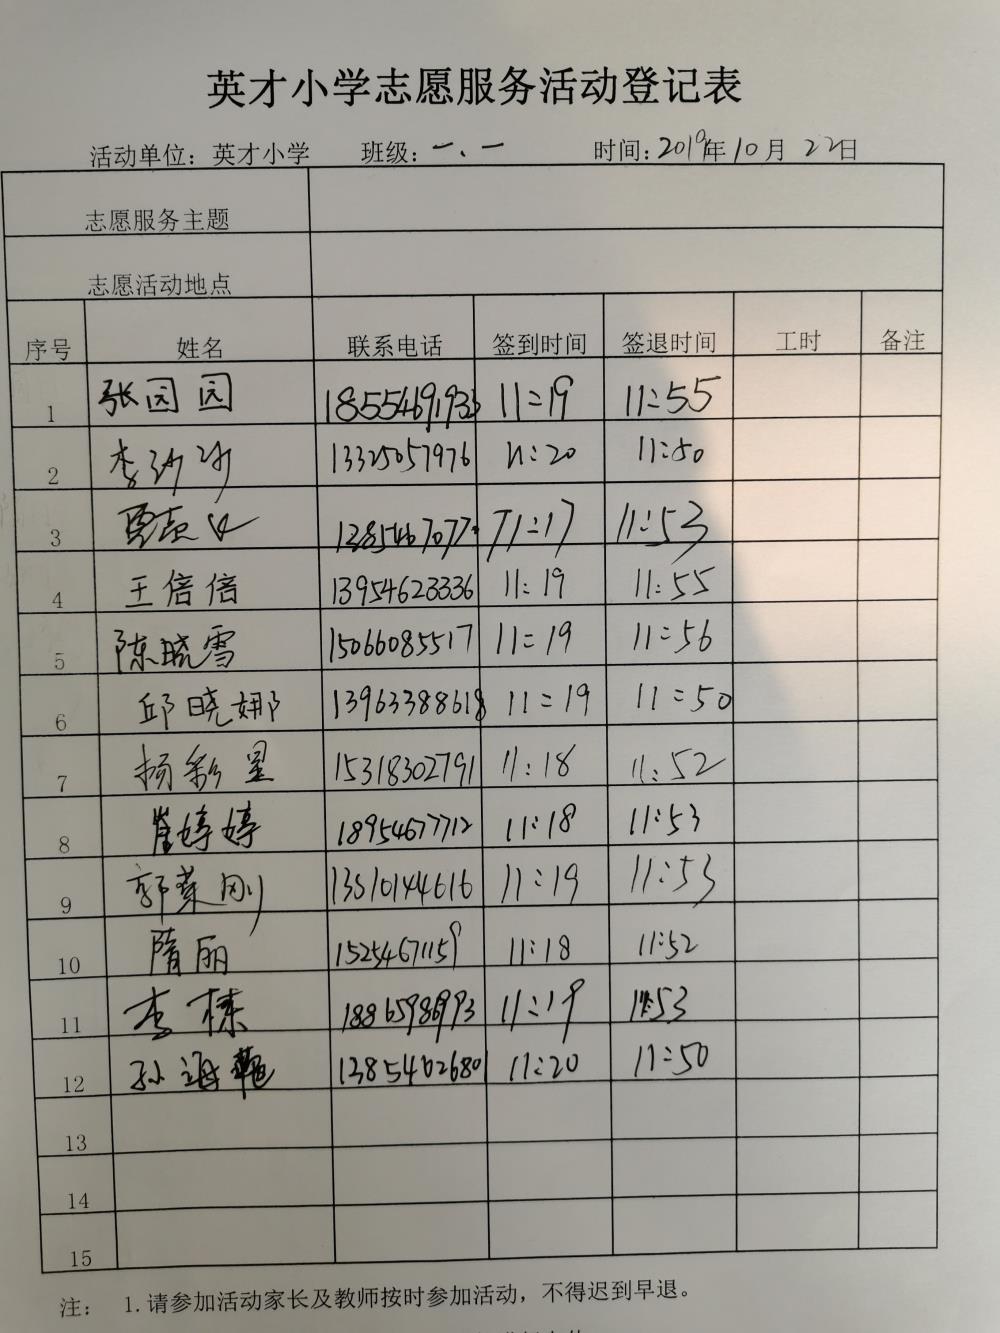 英才小学志愿服务活动登记表
活动单位：英才小学 班级：一、一 时间：2019年10月22日
志愿服务主题
志愿活动地点
序号 姓名 联系电话 签到时间 签退时间 工时 备注
1 张园园 18554691933 11:19 11:55
2 李 13325057976 11:20 11:50
3 贾 11:17 11:53
4 王倍倍 13954623336 11:19 11:55
5 陈晓雪 15066085517 11:19 11:56
6 邱晓娜 13963388618 11:19 11:50
7 杨彩星 15318302791 11:18 11:52
8 崔婷婷 18954677712 11:18 11:53
9 郭荣刚 13810144616 11:19 11:53
10 隋丽 15254671159 11:18 11:52
11 李栋 18865986993 11:19 11:53
12 孙海 13854626801 11:20 11:50
13
14
15
注： 1.请参加活动家长及教师按时参加活动，不得迟到早退。